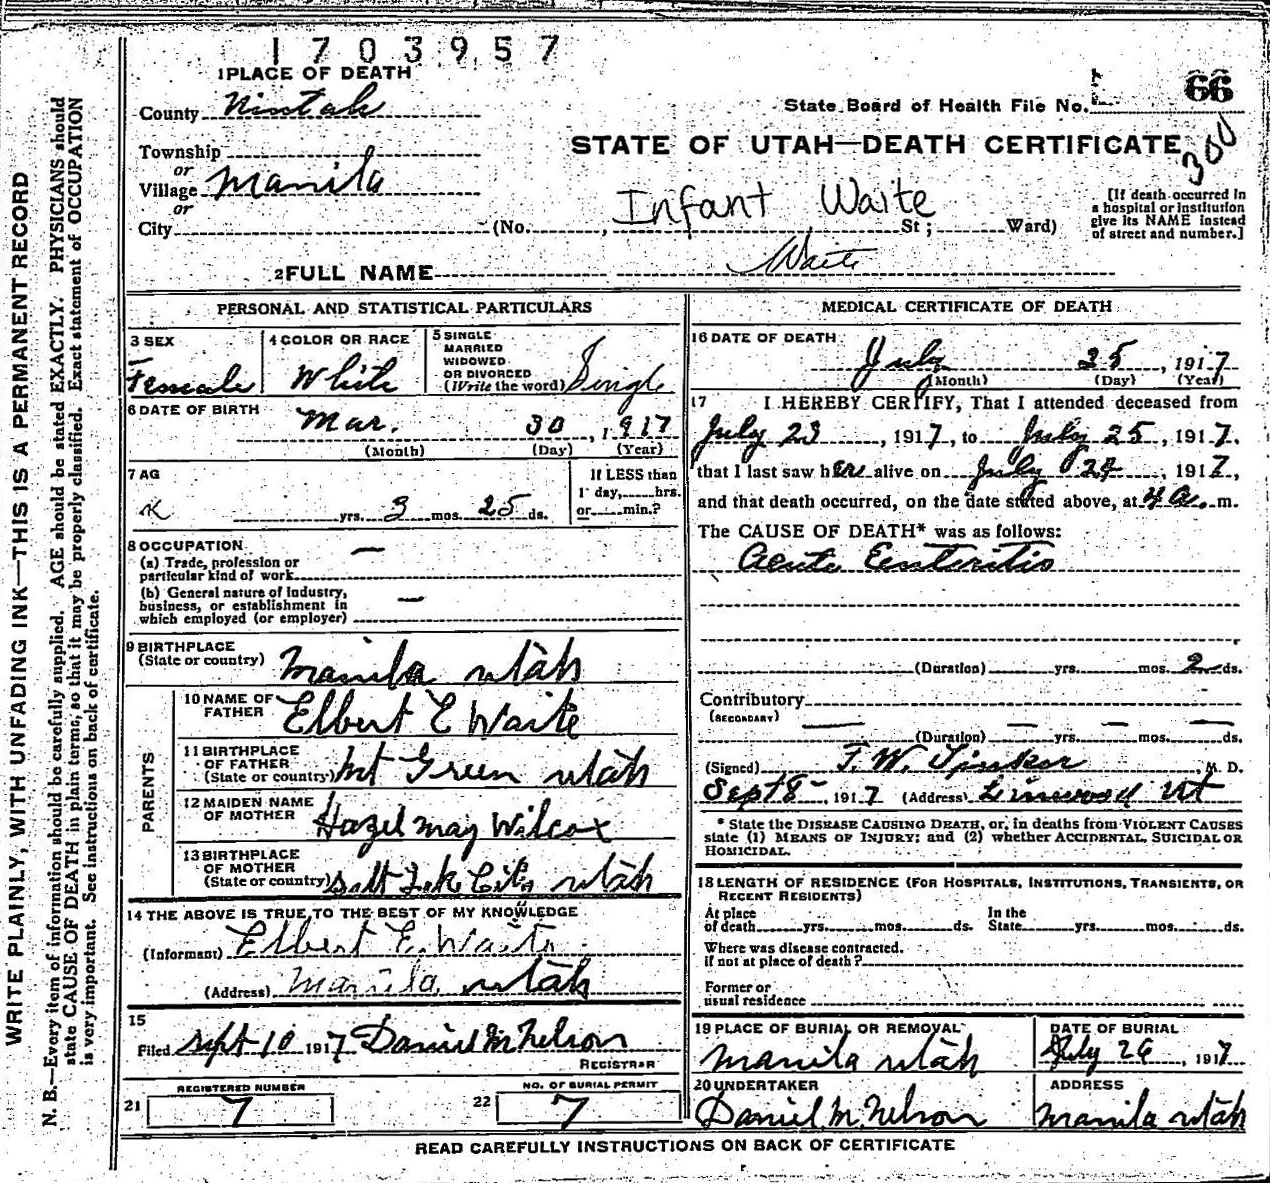 1703957
1 PLACE OF DEATH
County
State Board of Health File No. 66
300
STATE OF UTAH—DEATH CERTIFICATE
Township
or
Village Manila
or
City
Infant Waite
(No. , St ; Ward)
[If death occurred in
a hospital or institution
give its NAME instead
of street and number.]
2 FULL NAME Waite
WRITE PLAINLY, WITH UNFADING INK—THIS IS A PERMANENT RECORD
N. B.—Every item of information should be carefully supplied. AGE should be stated EXACTLY. PHYSICIANS should
state CAUSE OF DEATH in plain terms, so that it may be properly classified. Exact statement of OCCUPATION
is very important. See instructions on back of certificate.
PERSONAL AND STATISTICAL PARTICULARS
3 SEX
Female
4 COLOR OR RACE
White
5 SINGLE
MARRIED
WIDOWED
OR DIVORCED
(Write the word) Single
6 DATE OF BIRTH
Mar. 30, 1917
(Month) (Day) (Year)
7 AG
yrs. 3 mos. 25 ds.
If LESS than
1 day, hrs.
or min.?
8 OCCUPATION —
(a) Trade, profession or
particular kind of work
(b) General nature of industry,
business, or establishment in
which employed (or employer) —
9 BIRTHPLACE
(State or country) Manila Utah
PARENTS
10 NAME OF
FATHER Elbert E Waite
11 BIRTHPLACE
OF FATHER
(State or country) Mt Green Utah
12 MAIDEN NAME
OF MOTHER Hazel May Wilcox
13 BIRTHPLACE
OF MOTHER
(State or country) Salt Lake City Utah
14 THE ABOVE IS TRUE TO THE BEST OF MY KNOWLEDGE
(Informant) Elbert E. Waite
(Address) Manila Utah
15
Filed Sept 10 1917 Daniel M Nelson
REGISTRAR
REGISTERED NUMBER
21 7
NO. OF BURIAL PERMIT
22 7
MEDICAL CERTIFICATE OF DEATH
16 DATE OF DEATH
July 25, 1917
(Month) (Day) (Year)
17 I HEREBY CERTIFY, That I attended deceased from
July 23, 1917, to July 25, 1917.
that I last saw her alive on July 24, 1917,
and that death occurred, on the date stated above, at 4 a. m.
The CAUSE OF DEATH* was as follows:
Acute Enteritis
(Duration) yrs. mos. 2 ds.
Contributory
(SECONDARY)
(Duration) yrs. mos. ds.
(Signed) F. W. Tinker M. D.
Sept 8, 1917 (Address) Linwood Ut
* State the DISEASE CAUSING DEATH, or, in deaths from VIOLENT CAUSES
state (1) MEANS OF INJURY; and (2) whether ACCIDENTAL, SUICIDAL OR
HOMICIDAL.
18 LENGTH OF RESIDENCE (FOR HOSPITALS, INSTITUTIONS, TRANSIENTS, OR
RECENT RESIDENTS)
At place
of death yrs. mos. ds.
In the
State yrs. mos. ds.
Where was disease contracted.
if not at place of death?
Former or
usual residence
19 PLACE OF BURIAL OR REMOVAL
Manila Utah
DATE OF BURIAL
July 26, 1917
20 UNDERTAKER
Daniel M. Nelson
ADDRESS
Manila Utah
READ CAREFULLY INSTRUCTIONS ON BACK OF CERTIFICATE